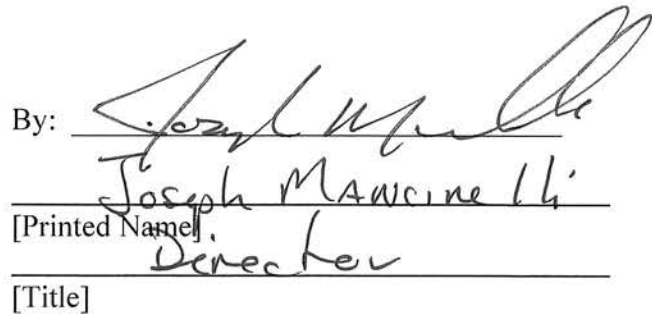 By: Joseph M
Joseph MANCINELLI
[Printed Name]
Director
[Title]